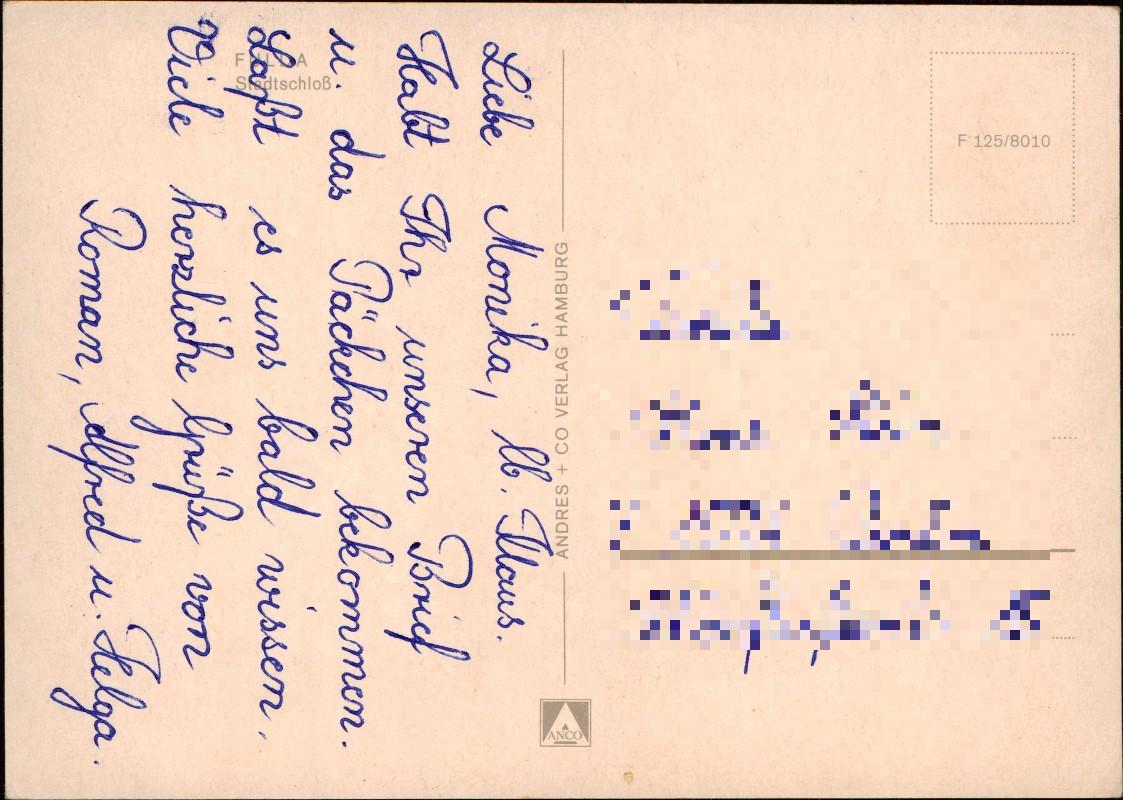 FULDA
Stadtschloß
Liebe Monika, lb. Klaus.
Habt Ihr unseren Brief
u. das Päckchen bekommen.
Laßt es uns bald wissen.
Viele herzliche Grüße von
Roman, Alfred u. Helga.
ANDRES + CO VERLAG HAMBURG
ANCO
F 125/8010